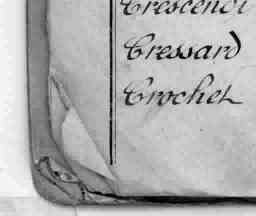 Crescendi
Cressard
Crochet